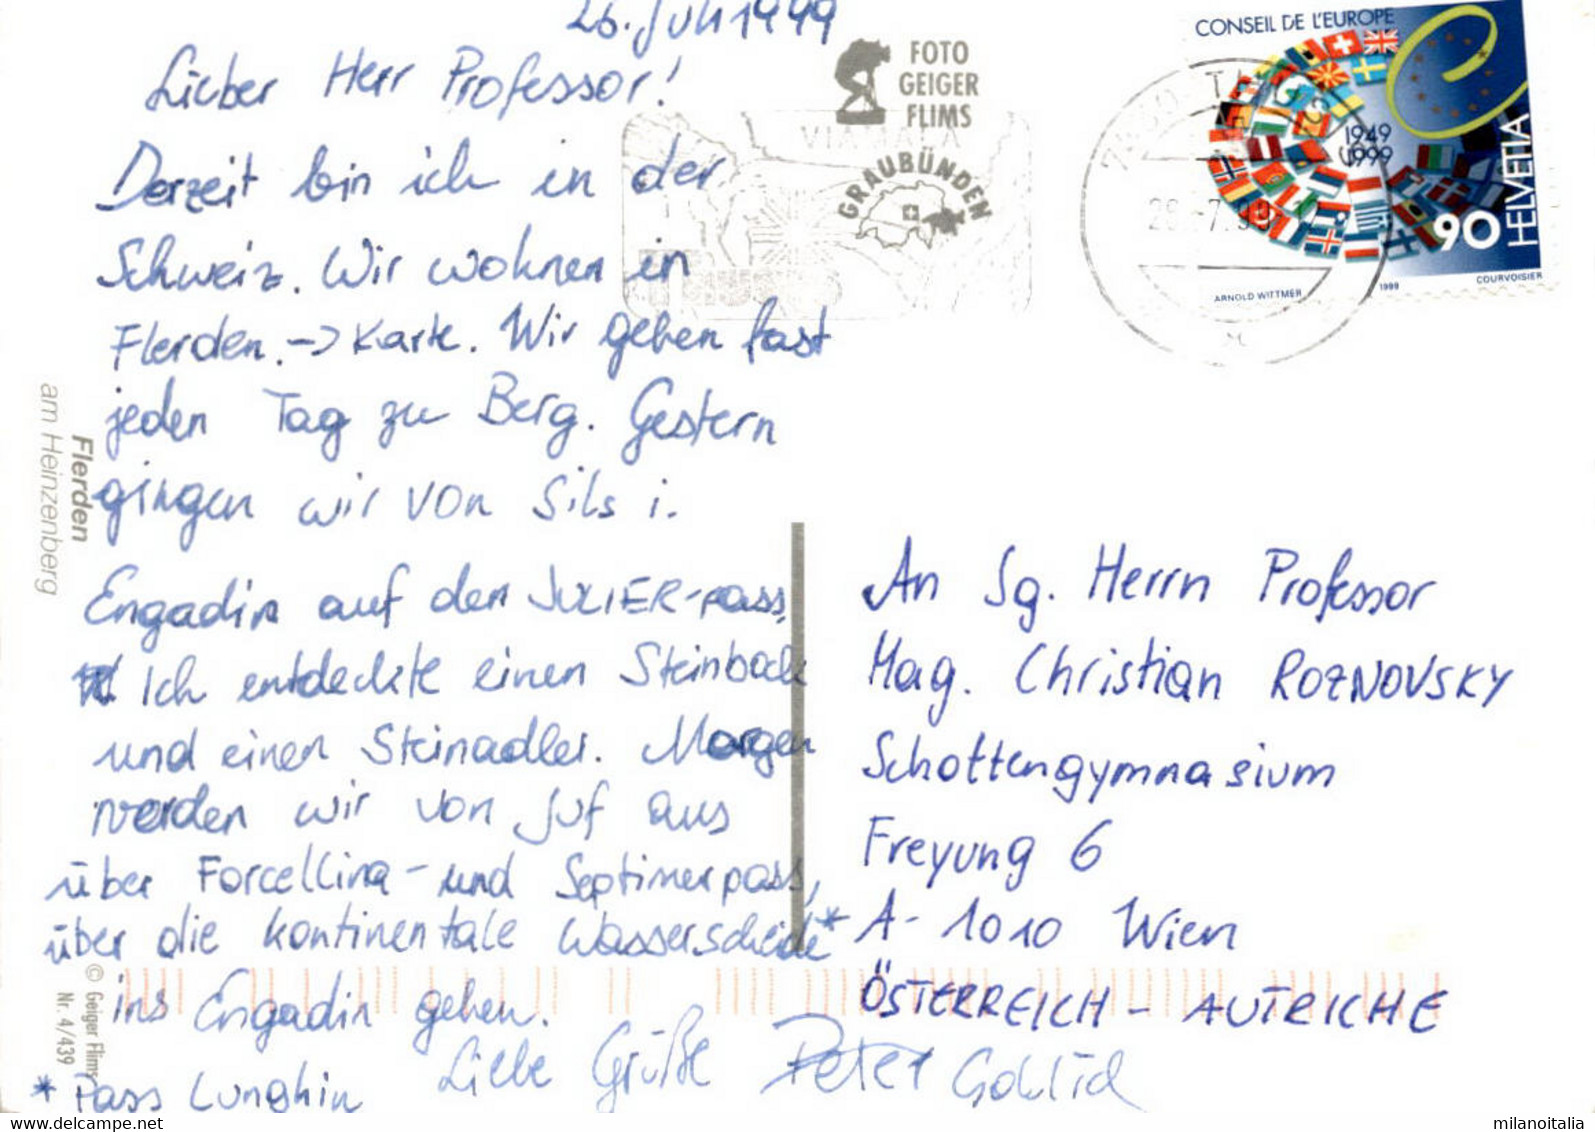 26. Juli 1999
Lieber Herr Professor!
Derzeit bin ich in der
Schweiz. Wir wohnen in
Flerden. -> Karte. Wir gehen fast
jeden Tag zu Berg. Gestern
gingen wir von Sils i.
Engadin auf den JULIER-pass.
Ich entdeckte einen Steinbock
und einen Steinadler. Morgen
werden wir von Juf aus
über Forcellina- und Septimerpass,
über die kontinentale Wasserscheide*
ins Engadin gehen.
Liebe Grüße Peter
* Pass Lunghin
An Sg. Herrn Professor
Mag. Christian ROZNOVSKY
Schottengymnasium
Freyung 6
A-1010 Wien
ÖSTERREICH - AUTRICHE
Flerden
am Heinzenberg
© Geiger Flims
Nr. 4/439
FOTO
GEIGER
FLIMS
GRAUBÜNDEN
VIAMALA
CONSEIL DE L'EUROPE
1949
1999
90
HELVETIA
ARNOLD WITTMER
1999
COURVOISIER
milanoitalia